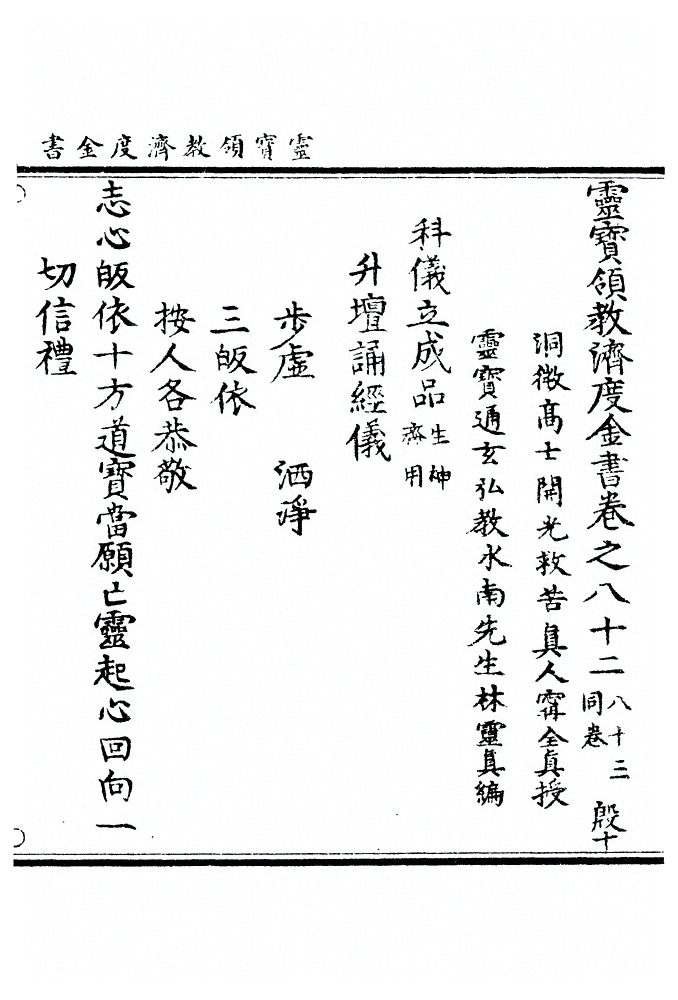 靈寳領教濟度金書
靈寳領教濟度金書卷之八十二 八十三同卷 殷十
洞微髙士開光救苦真人甯全真授
靈寳通玄弘教水南先生林靈真編
科儀立成品 生神齋用
升壇誦經儀
步虛 洒淨
三皈依
按人各恭敬
志心皈依十方道寳當願亡靈起心回向一
切信禮